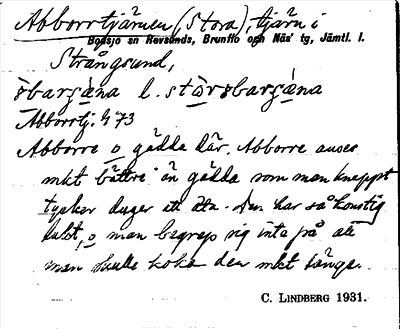 Abborrtjärnen (Stora), tjärn i
Bodsjö sn Revsunds, Brunflo och Näs' tg, Jämtl. l.
Strångsund,
Abborrtj. h 73
Abborre o gädda där. Abborre anses
mkt bättre än gädda som man knappt
tycker duger att äta. Den har så konstig
lukt, o man begrep sig inte på att
man skulle koka den mkt länge.
C. LINDBERG 1931.